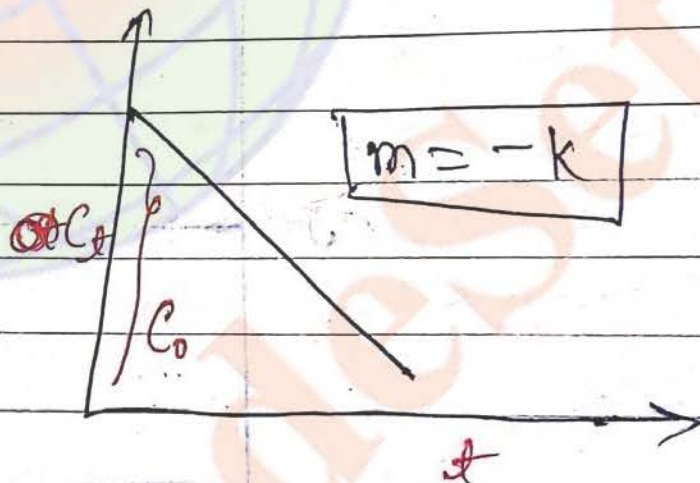 m = - k
C_t
C_0
t